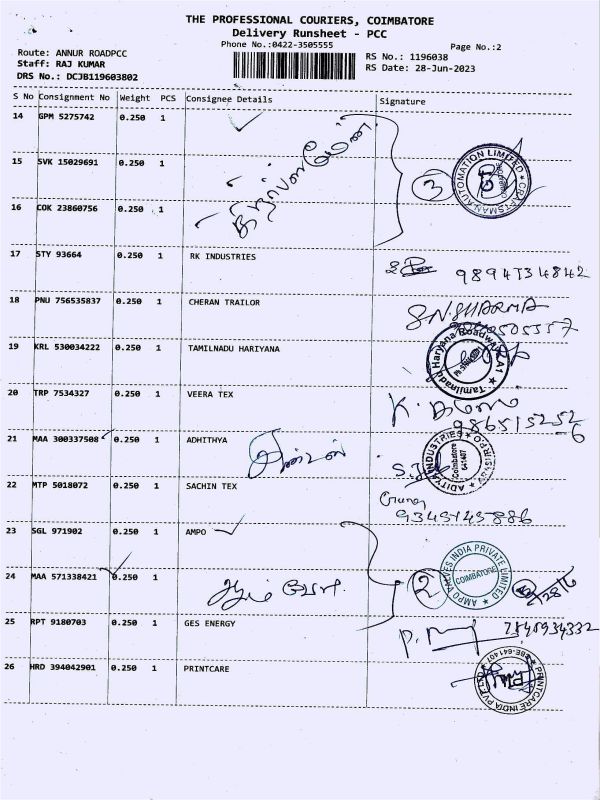 THE PROFESSIONAL COURIERS, COIMBATORE
Delivery Runsheet - PCC
Phone No.:0422-3505555
Page No.:2
Route: ANNUR ROADPCC
Staff: RAJ KUMAR
DRS No.: DCJB119603802
RS No.: 1196038
RS Date: 28-Jun-2023
S No Consignment No Weight PCS Consignee Details Signature
14 GPM 5275742 0.250 1
15 SVK 15029691 0.250 1
3
CRAFTSMAN AUTOMATION LIMITED
16 COK 23860756 0.250 1
17 STY 93664 0.250 1 RK INDUSTRIES
9894734842
18 PNU 756535837 0.250 1 CHERAN TRAILOR
S.N.SHARMA
19 KRL 530034222 0.250 1 TAMILNADU HARIYANA
Tamilnadu Haryana Roadways
20 TRP 7534327 0.250 1 VEERA TEX
9865152526
21 MAA 300337508 0.250 1 ADHITHYA
ADITYA INDUSTRIES
Coimbatore
641407
22 MTP 5018072 0.250 1 SACHIN TEX
9345145886
23 SGL 971902 0.250 1 AMPO
24 MAA 571338421 0.250 1
2
AMPO VALVES INDIA PRIVATE LIMITED
COIMBATORE
25 RPT 9180703 0.250 1 GES ENERGY
26 HRD 394042901 0.250 1 PRINTCARE
PRINTCARE INDIA PVT LTD
CBE-641407